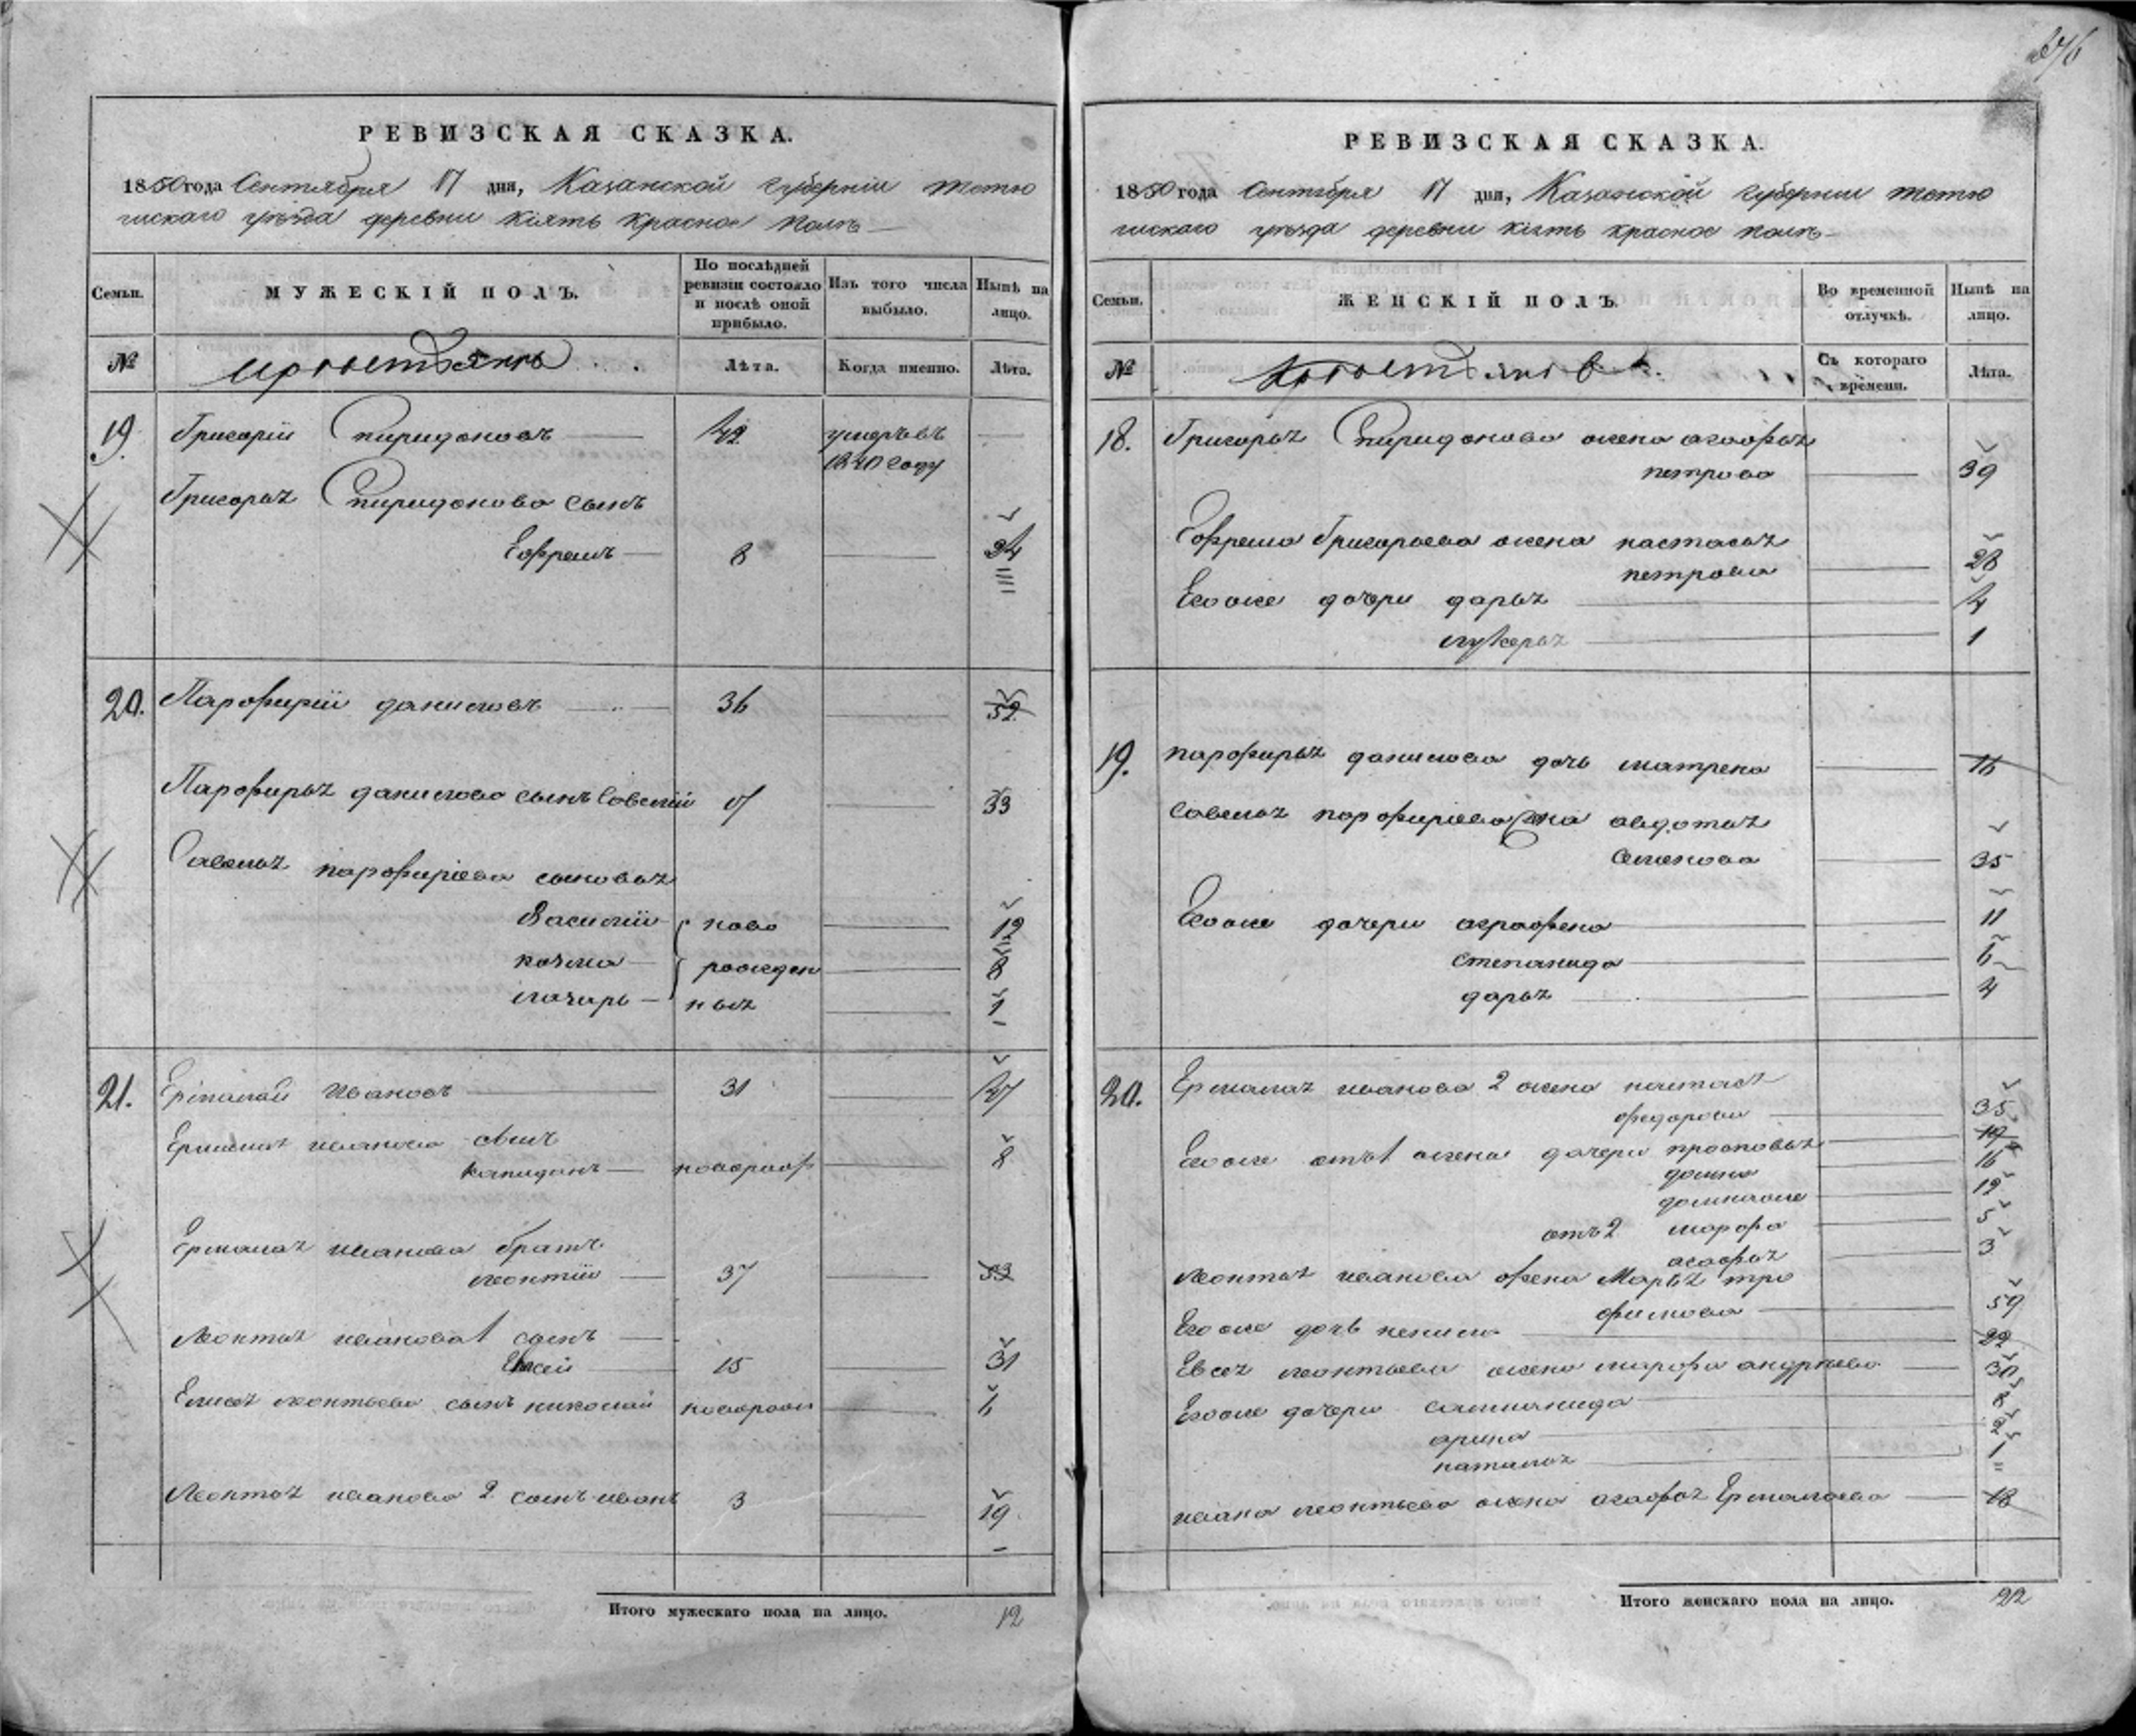 276
РЕВИЗСКАЯ СКАЗКА.
1850 года Сентября 17 дня, Казанской губернии тетю
шскаго уезда деревни Кіять Красное
Семьи.
МУЖЕСКІЙ ПОЛЪ.
По послѣдней ревизіи состояло и послѣ оной прибыло.
Изъ того числа выбыло.
Нынѣ на лицо.
№
Лѣта.
Когда именно.
Лѣта.
19. Григорій Спиридоновъ 42
1840 году
Григорья Спиридонова сынъ
Ефремъ 8 24
20. Парфирий даниловъ 36 52
Парфирья данилова сынъ Савелий 17 33
Савелья парфирiева сыновья
Василий ново 12
козма рожден 8
ныя 1
21. Ермалай Ивановъ 31 47
Ермалая иванова сынъ
новорож 8
Ермалая иванова братъ
леонтий 37 53
леонтья иванова 1 сынъ
15 31
леонтьева сынъ николай новорож 6
Леонтья иванова 2 сынъ иванъ 3 19
Итого мужескаго пола на лицо. 12
РЕВИЗСКАЯ СКАЗКА.
1850 года Сентября 17 дня, Казанской губернии тетю
шскаго уезда деревни Кіять Красное
Семьи.
ЖЕНСКІЙ ПОЛЪ.
Во временной отлучкѣ.
Нынѣ на лицо.
№
Съ котораго времени.
Лѣта.
18. Григорья Спиридонова жена агафья
петрова 39
Ефрема Григорьева жена настасья
петрова 28
Его же дочери дарья 4
лукерья 1
19. парфирья данилова дочь матрена 16
Савелья парфирiева жена авдотья
семенова 35
Его же дочери аграфена 11
степанида 6
дарья 4
20. Ермалая иванова 2 жена настась
федорова 35
Его же отъ 1 жены дочери просковья 19
16
12
отъ 2 марфа 5
агафья 3
леонтья иванова жена Марья тро
фимова 59
Его же дочь 22
Евсея леонтьева жена марфа андреева 30
Его же дочери 8
арина 2
наталья 1
ивана леонтьева жена агафья Ермалаева 18
Итого женскаго пола на лицо. 22